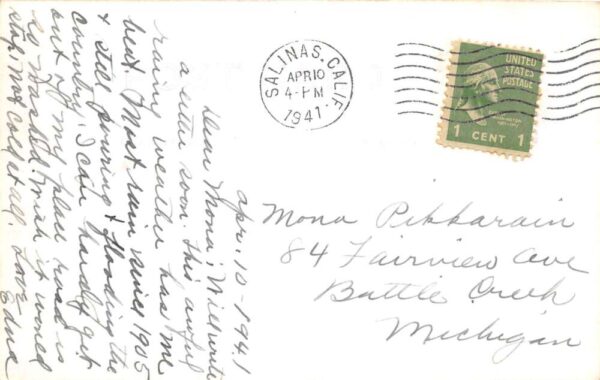 SALINAS, CALIF.
APR 10
4-PM
1941
UNITED
STATES
POSTAGE
1 CENT 1
Apr. 10-1941
Dear Mona; Will write
a letter soon. This awful
raining weather has me
beat. Most rain since 1905
& still pouring & flooding the
country. I can hardly get
out of my place road is
so washed. Wish it would
stop. Not cold at all. Love
Edna
Mona Pikkarain
84 Fairview Ave
Battle Creek
Michigan